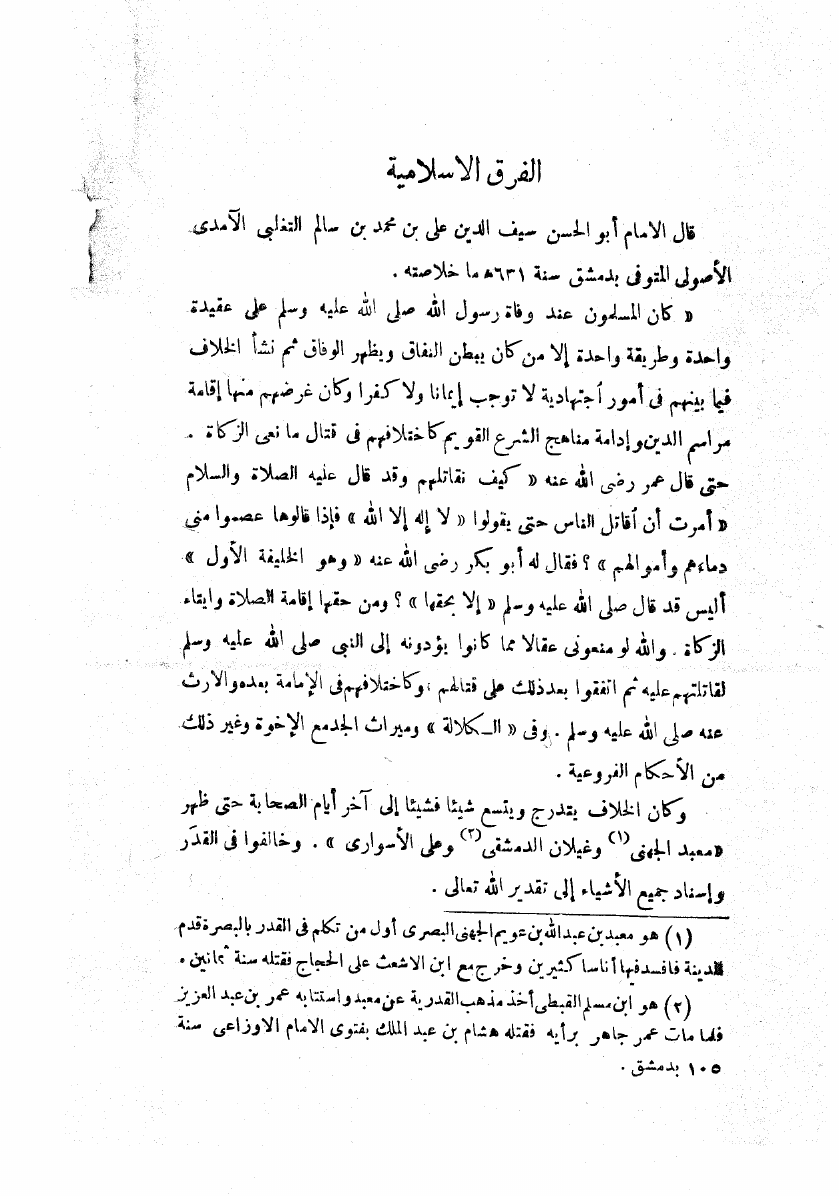 الفرق الاسلامية
قال الامام أبو الحسن سيف الدين على بن محمد بن سالم التغلبى الآمدى
الأصولى المتوفى بدمشق سنة ٦٣١ه ما خلاصته .
« كان المسلمون عند وفاة رسول الله صلى الله عليه وسلم على عقيدة
واحدة وطريقة واحدة إلا من كان يبطن النفاق ويظهر الوفاق ثم نشأ الخلاف
فيما بينهم فى أمور اجتهادية لا توجب إيمانا ولا كفرا وكان غرضهم منها إقامة
مراسم الدين وإدامة مناهج الشرع القويم كاختلافهم فى قتال ما نعى الزكاة .
حتى قال عمر رضى الله عنه « كيف نقاتلهم وقد قال عليه الصلاة والسلام
« أمرت أن أقاتل الناس حتى يقولوا « لا إله إلا الله » فإذا قالوها عصموا منى
دماءهم وأموالهم » ؟ فقال له أبو بكر رضى الله عنه « وهو الخليفة الأول »
أليس قد قال صلى الله عليه وسلم « إلا بحقها » ؟ ومن حقها إقامة الصلاة وايتاء
الزكاة . والله لو منعونى عقالا مما كانوا يؤدونه إلى النبى صلى الله عليه وسلم
لقاتلتهم عليه ثم اتفقوا بعد ذلك على قتالهم ، وكاختلافهم فى الإمامة بعده والارث
عنه صلى الله عليه وسلم . وفى « الكلالة » وميراث الجد مع الإخوة وغير ذلك
من الأحكام الفروعية .
وكان الخلاف يتدرج ويتسع شيئا فشيئا إلى آخر أيام الصحابة حتى ظهر
« معبد الجهنى (١) وغيلان الدمشقى (٢) وعلى الأسوارى » . وخالفوا فى القدَر
وإسناد جميع الأشياء إلى تقدير الله تعالى .
(١) هو معبد بن عبد الله بن عويم الجهنى البصرى أول من تكلم فى القدر بالبصرة قدم
المدينة فافسد فيها أناسا كثيرين وخرج مع ابن الاشعث على الحجاج فقتله سنة ثمانين ه
(٢) هو ابن مسلم القبطى أخذ مذهب القدرية عن معبد واستتابه عمر بن عبد العزيز
فلما مات عمر جاهر برأيه فقتله هشام بن عبد الملك بفتوى الامام الاوزاعى سنة
١٠٥ بدمشق .